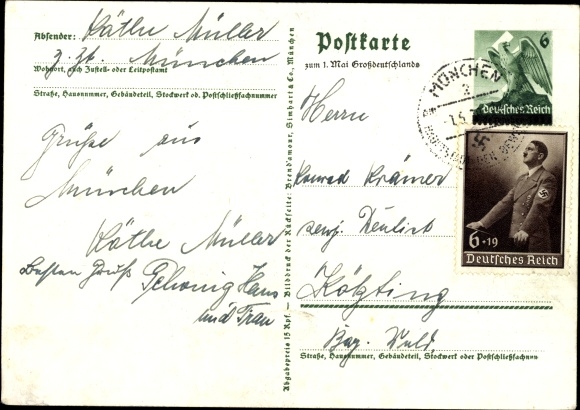 Absender: Käthe Müller
z. Zt. München
Wohnort, auch Zustell- oder Leitpostamt
Straße, Hausnummer, Gebäudeteil, Stockwerk od. Postschließfachnummer
Grüße aus
München
Käthe Müller
Besten Gruß Hans
und Frau
Abgabepreis 15 Rpf. — Bilddruck der Rückseite: Brend'amour, Simhart & Co., München
Postkarte
zum 1. Mai Großdeutschlands
6
Deutsches Reich
MÜNCHEN
2
HAUPTSTADT DER BEWEGUNG
6+19
Deutsches Reich
Herrn
Konrad Krämer
Kötzting
Bay. Wald.
Straße, Hausnummer, Gebäudeteil, Stockwerk oder Postschließfachnummer